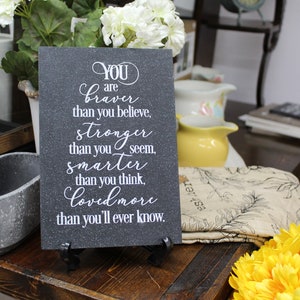 YOU
are
braver
than you believe,
stronger
than you seem,
smarter
than you think,
loved more
than you'll ever know.